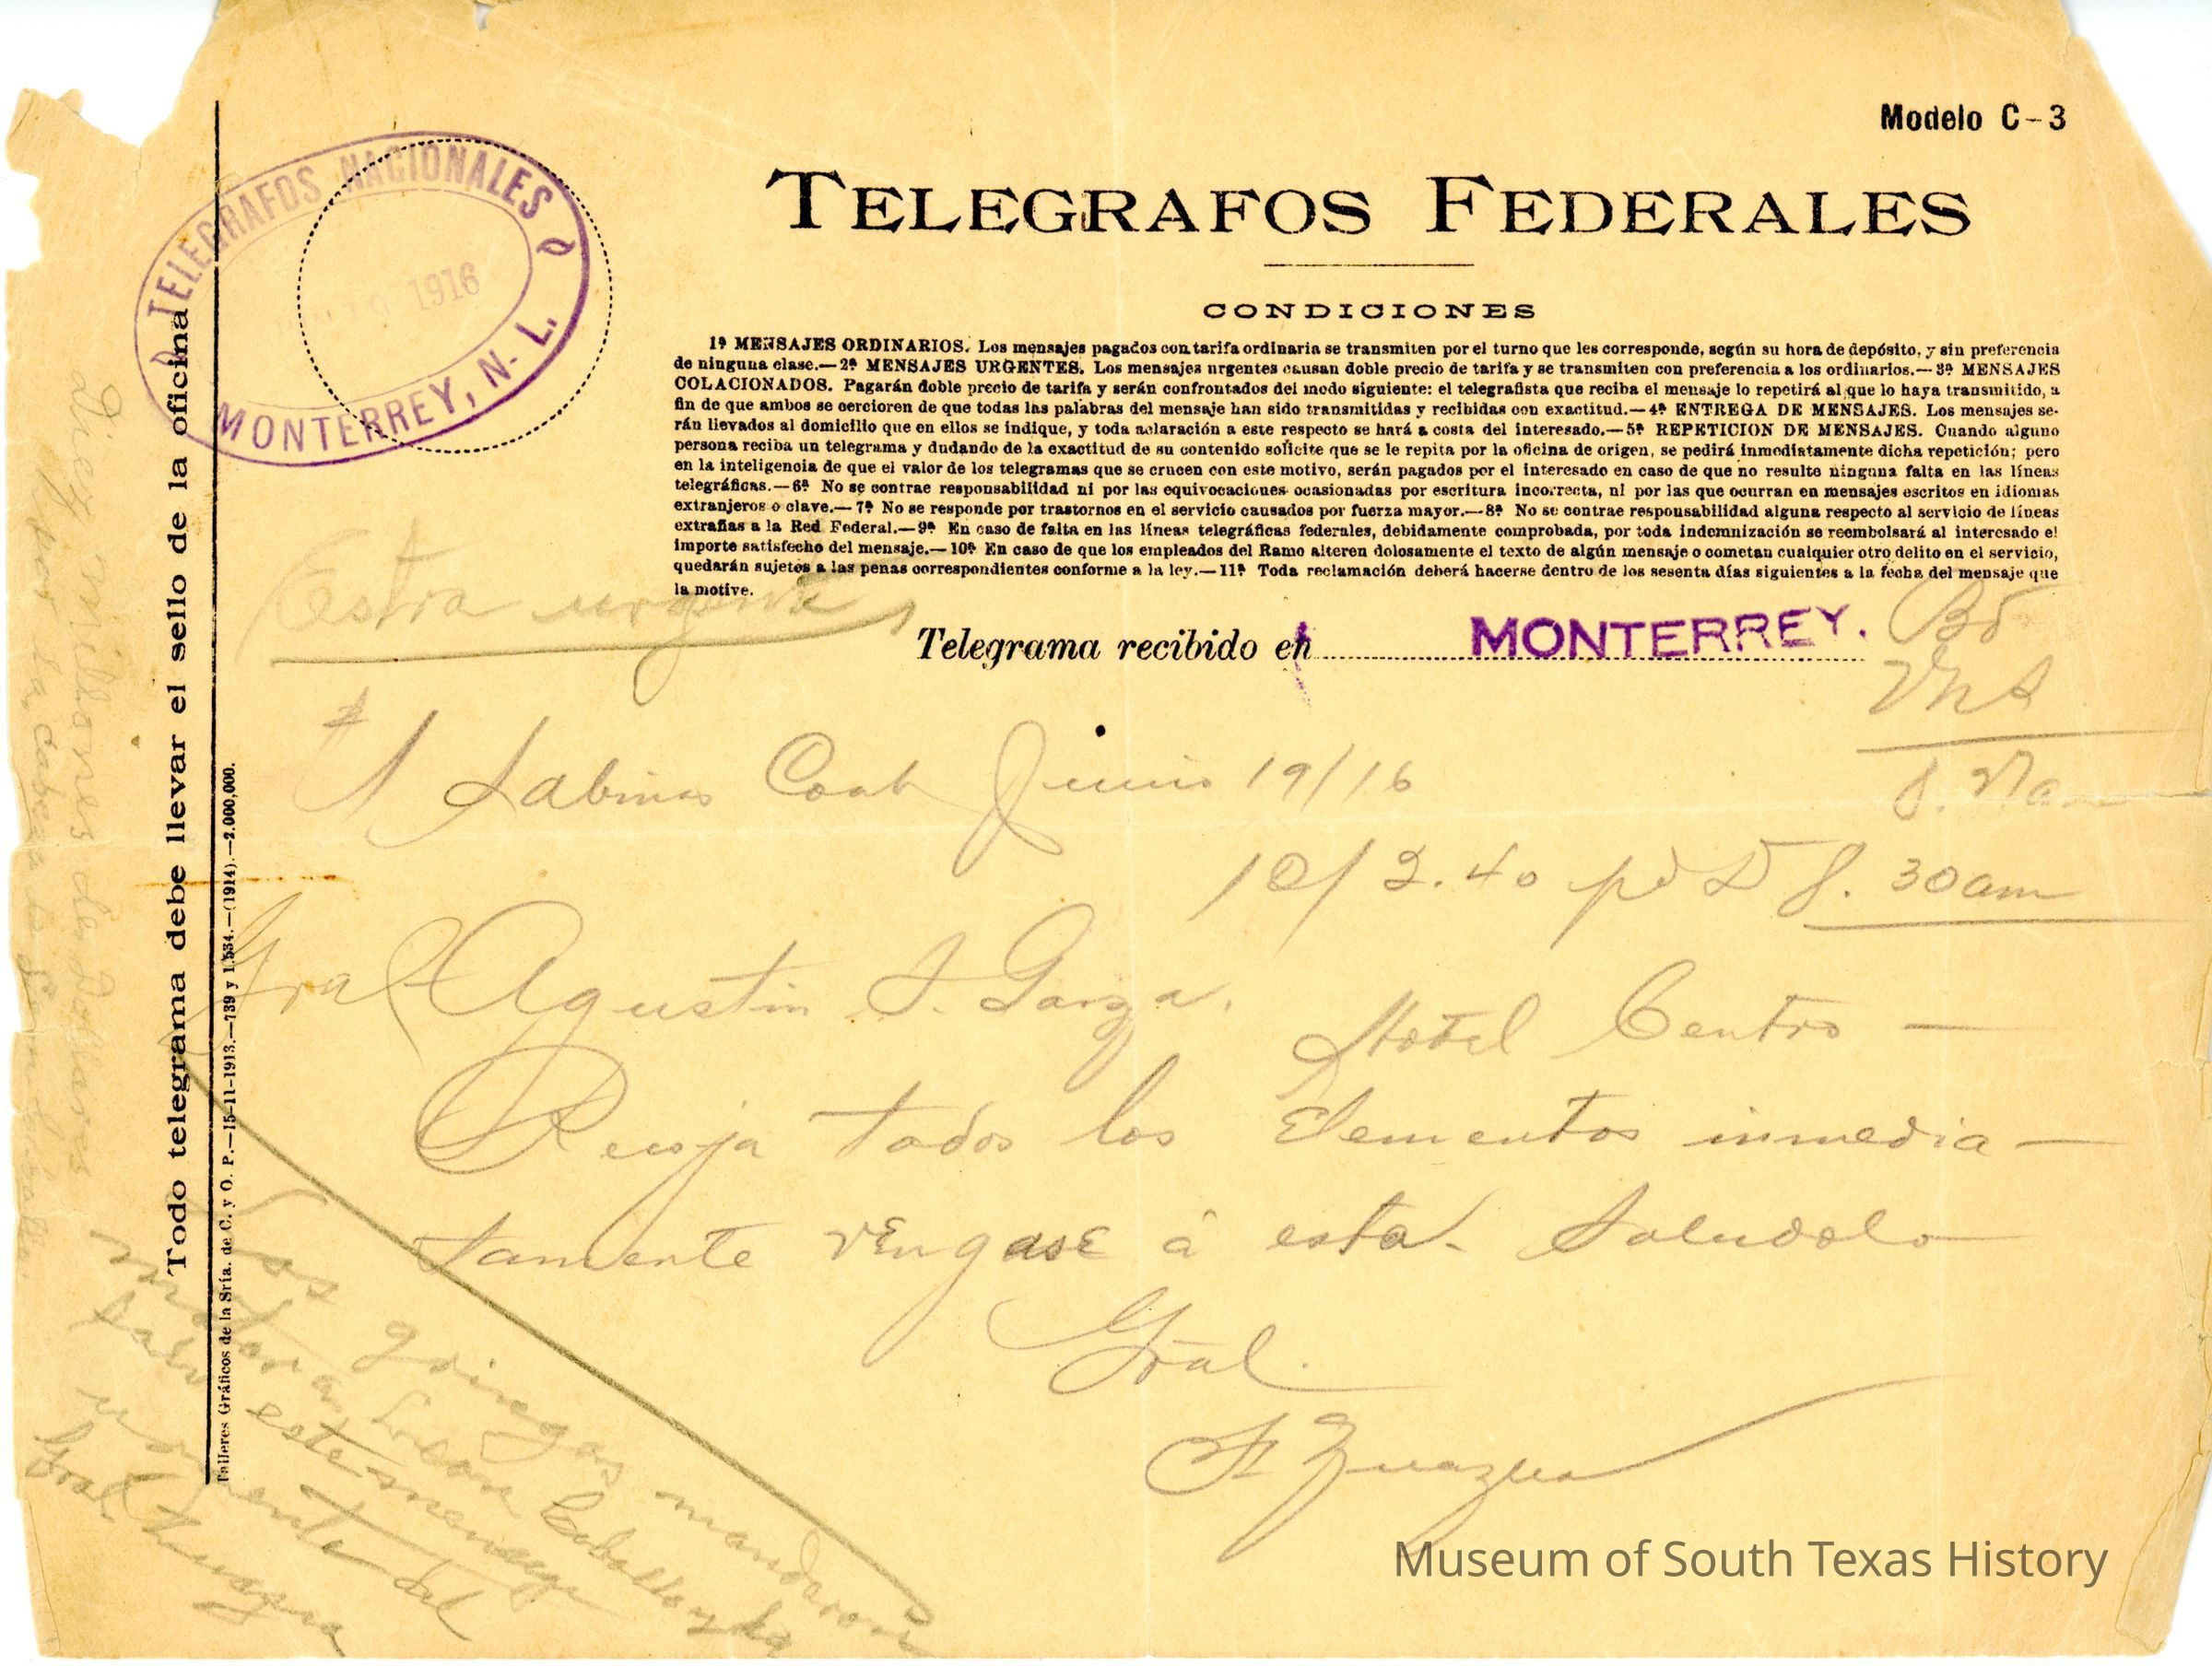 Modelo C-3
TELEGRAFOS FEDERALES
CONDICIONES
1ª MENSAJES ORDINARIOS. Los mensajes pagados con tarifa ordinaria se transmiten por el turno que les corresponde, según su hora de depósito, y sin preferencia
de ninguna clase.—2ª MENSAJES URGENTES. Los mensajes urgentes causan doble precio de tarifa y se transmiten con preferencia a los ordinarios.—3ª MENSAJES
COLACIONADOS. Pagarán doble precio de tarifa y serán confrontados del modo siguiente: el telegrafista que reciba el mensaje lo repetirá al que lo haya transmitido, a
fin de que ambos se cercioren de que todas las palabras del mensaje han sido transmitidas y recibidas con exactitud.—4ª ENTREGA DE MENSAJES. Los mensajes se-
rán llevados al domicilio que en ellos se indique, y toda aclaración a este respecto se hará a costa del interesado.—5ª REPETICION DE MENSAJES. Cuando alguno
persona reciba un telegrama y dudando de la exactitud de su contenido solicite que se le repita por la oficina de origen, se pedirá inmediatamente dicha repetición; pero
en la inteligencia de que el valor de los telegramas que se crucen con este motivo, serán pagados por el interesado en caso de que no resulte ninguna falta en las líneas
telegráficas.—6ª No se contrae responsabilidad ni por las equivocaciones ocasionadas por escritura incorrecta, ni por las que ocurran en mensajes escritos en idiomas
extranjeros o clave.—7ª No se responde por trastornos en el servicio causados por fuerza mayor.—8ª No se contrae responsabilidad alguna respecto al servicio de líneas
extrañas a la Red Federal.—9ª En caso de falta en las líneas telegráficas federales, debidamente comprobada, por toda indemnización se reembolsará al interesado el
importe satisfecho del mensaje.—10ª En caso de que los empleados del Ramo alteren dolosamente el texto de algún mensaje o cometan cualquier otro delito en el servicio,
quedarán sujetos a las penas correspondientes conforme a la ley.—11ª Toda reclamación deberá hacerse dentro de los sesenta días siguientes a la fecha del mensaje que
la motive.
TELEGRAFOS NACIONALES
1916
MONTERREY, N. L.
Todo telegrama debe llevar el sello de la oficina
Talleres Gráficos de la Sría. de C. y O. P.—15-11-1913.—739 y 1,534.—(1914).—2.000,000.
Estra urgente
Telegrama recibido en MONTERREY.
# 1 Sabinas Coah Junio 19/16
10/ 2.40 pd D 8. 30am
Gral Agustin S. Garza.
Hotel Centro —
Recoja todos los Elementos inmedia—
tamente vengase á esta. Saludolo
Gral.
F Zuazua
Diez millones de Dollares
por la cabeza
Los gringos mandaron
este mensaje
Gral Zuazua
Museum of South Texas History